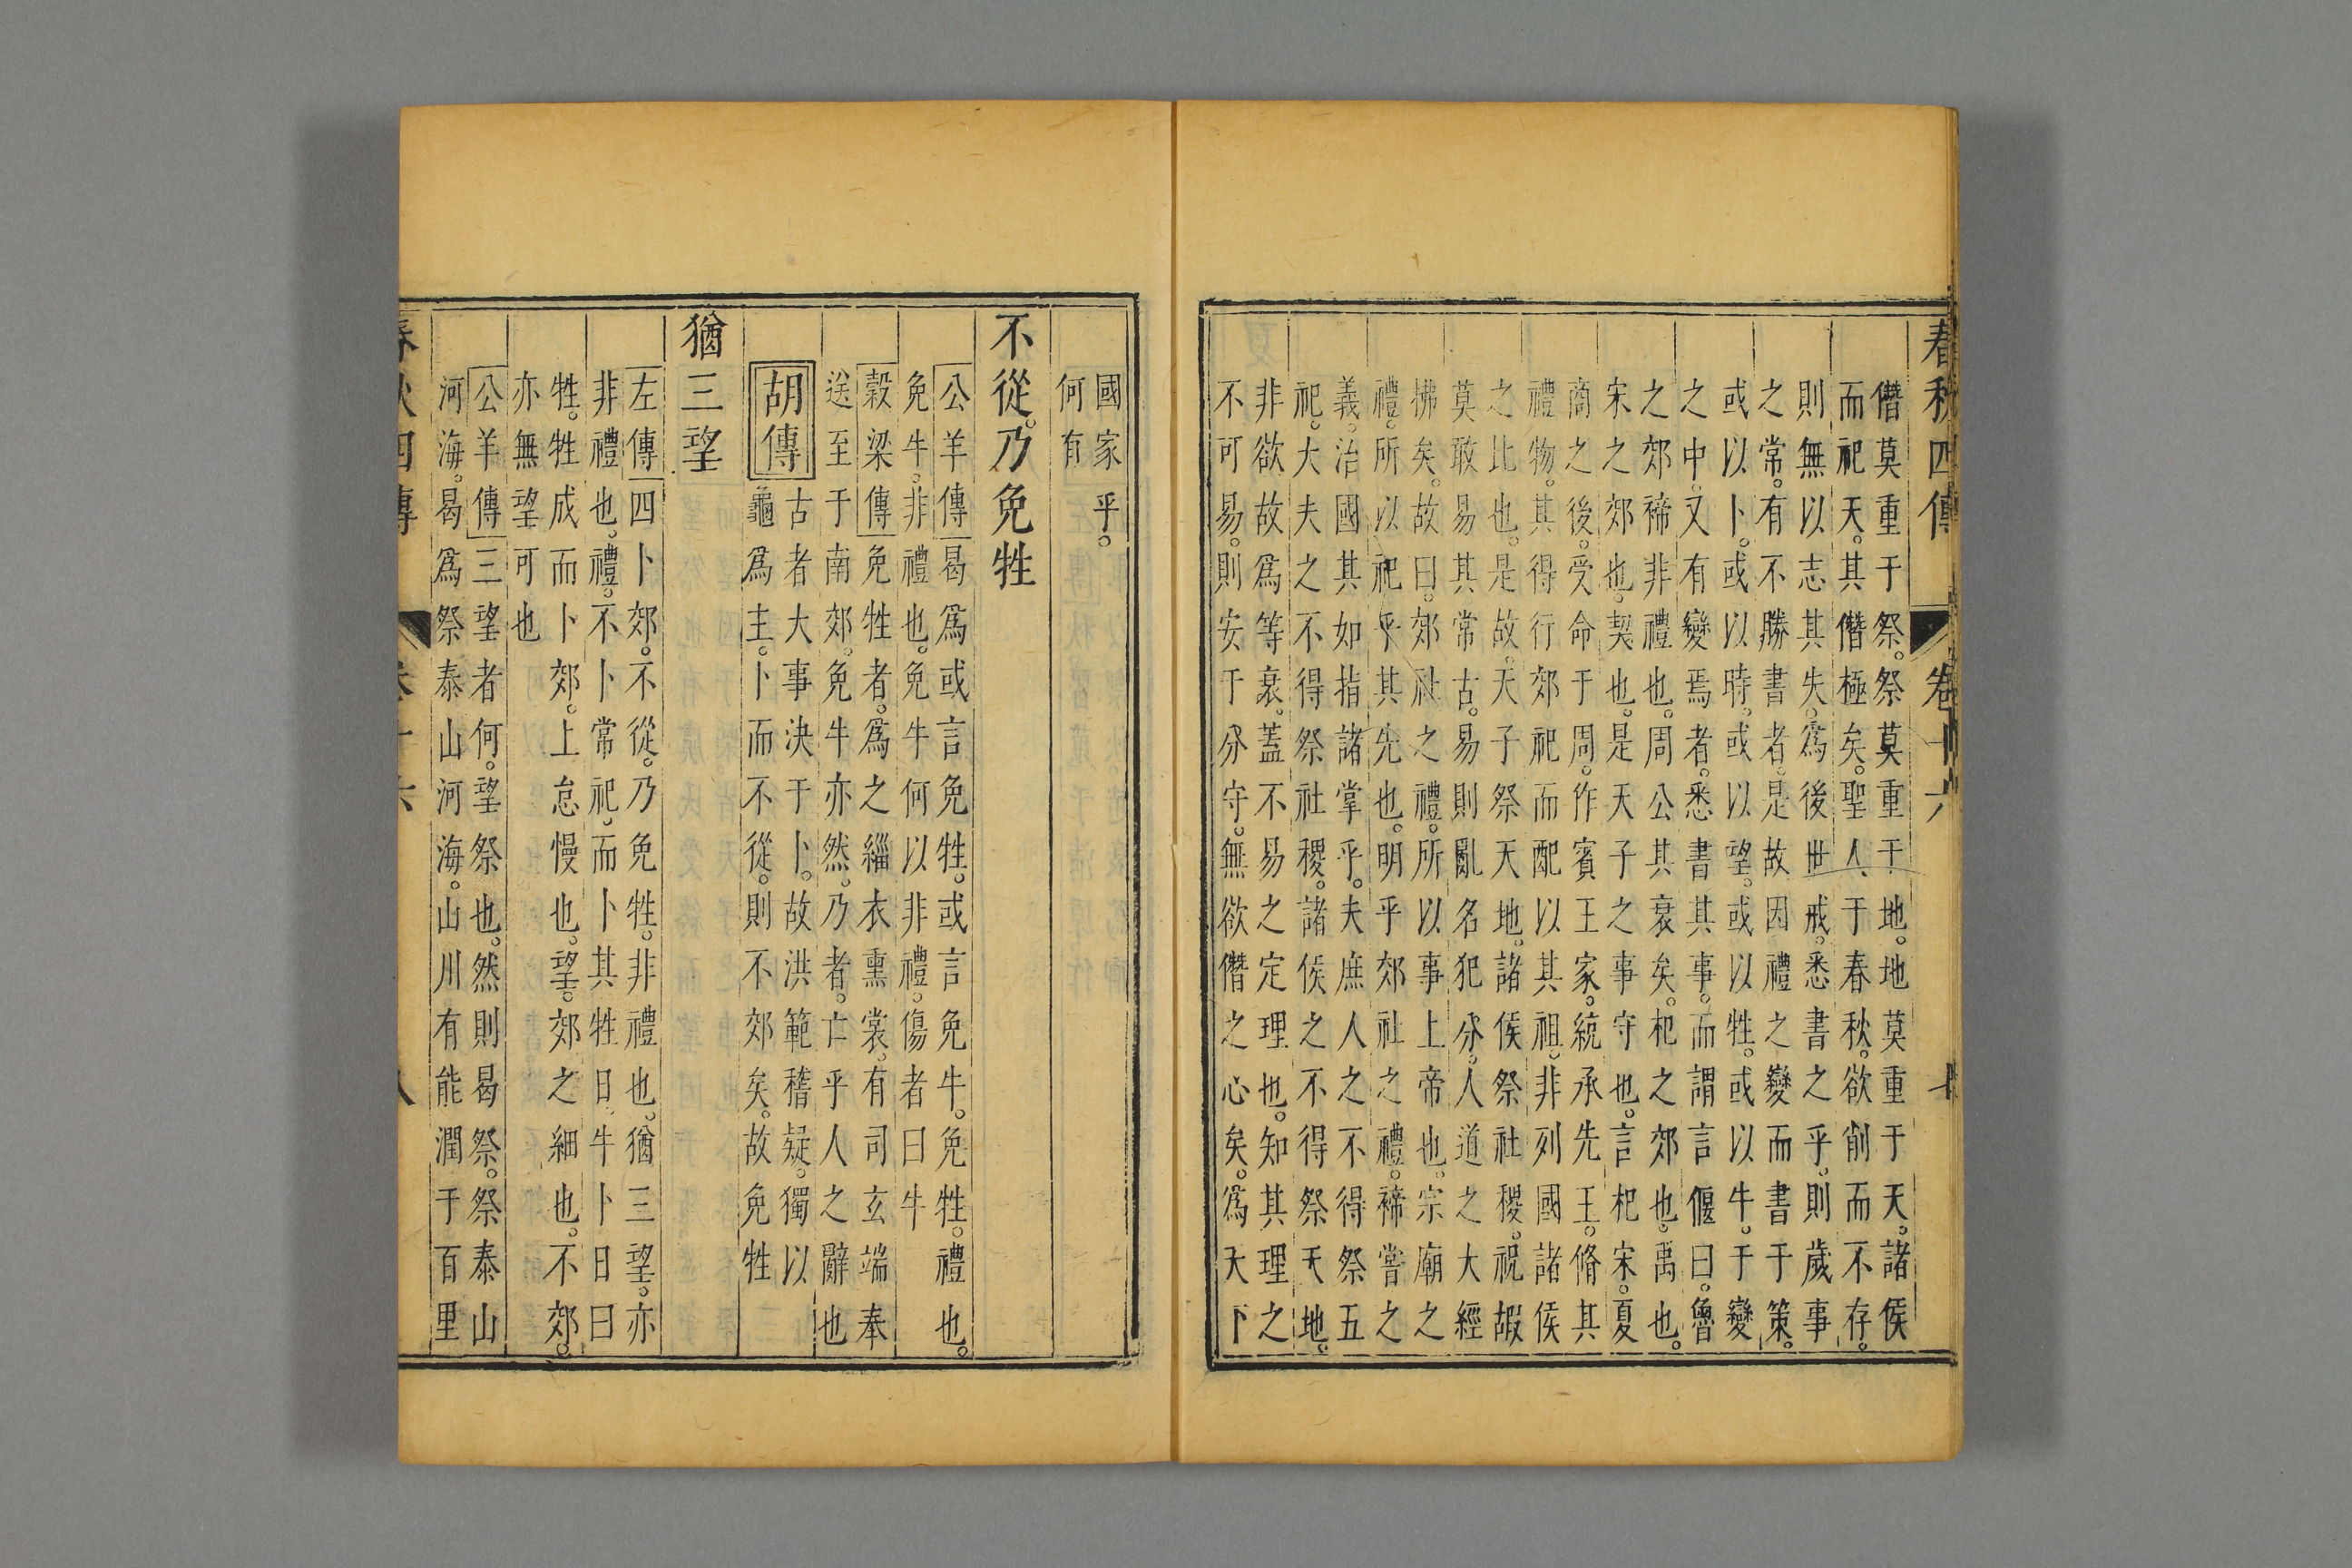 春秋四傳 卷十六 七
僭莫重于祭。祭莫重于地。地莫重于天。諸侯
而祀天。其僭極矣。聖人于春秋。欲削而不存。
則無以志其失。爲後世戒。悉書之乎。則歲事
之常。有不勝書者。是故因禮之變而書于策。
或以卜。或以時。或以望。或以牲。或以牛。于變
之中。又有變焉者。悉書其事。而謂言偃曰。魯
之郊禘非禮也。周公其衰矣。杞之郊也。禹也。
宋之郊也。契也。是天子之事守也。言杞宋。夏
商之後。受命于周。作賓王家。統承先王。脩其
禮物。其得行郊祀而配以其祖。非列國諸侯
之比也。是故。天子祭天地。諸侯祭社稷。祝嘏
莫敢易其常古。易則亂名犯分。人道之大經
拂矣。故曰。郊社之禮。所以事上帝也。宗廟之
禮。所以祀乎其先也。明乎郊社之禮。禘嘗之
義。治國其如指諸掌乎。夫庶人之不得祭五
祀。大夫之不得祭社稷。諸侯之不得祭天地。
非欲故爲等衰。蓋不易之定理也。知其理之
不可易。則安于分守。無欲僭之心矣。爲天下
國家乎。
何有
不從。乃免牲
公羊傳 曷爲或言免牲。或言免牛。免牲。禮也。
免牛。非禮也。免牛何以非禮。傷者曰牛
穀梁傳 免牲者。爲之緇衣熏裳。有司玄端奉
送至于南郊。免牛亦然。乃者。亡乎人之辭也
胡傳 古者大事決于卜。故洪範稽疑。獨以
龜爲主。卜而不從。則不郊矣。故免牲
猶三望
左傳 四卜郊。不從。乃免牲。非禮也。猶三望。亦
非禮也。禮。不卜常祀。而卜其牲日。牛卜日曰
牲。牲成而卜郊。上怠慢也。望。郊之細也。不郊。
亦無望可也
公羊傳 三望者何。望祭也。然則曷祭。祭泰山
河海。曷爲祭泰山河海。山川有能潤于百里
春秋四傳 卷十六 八